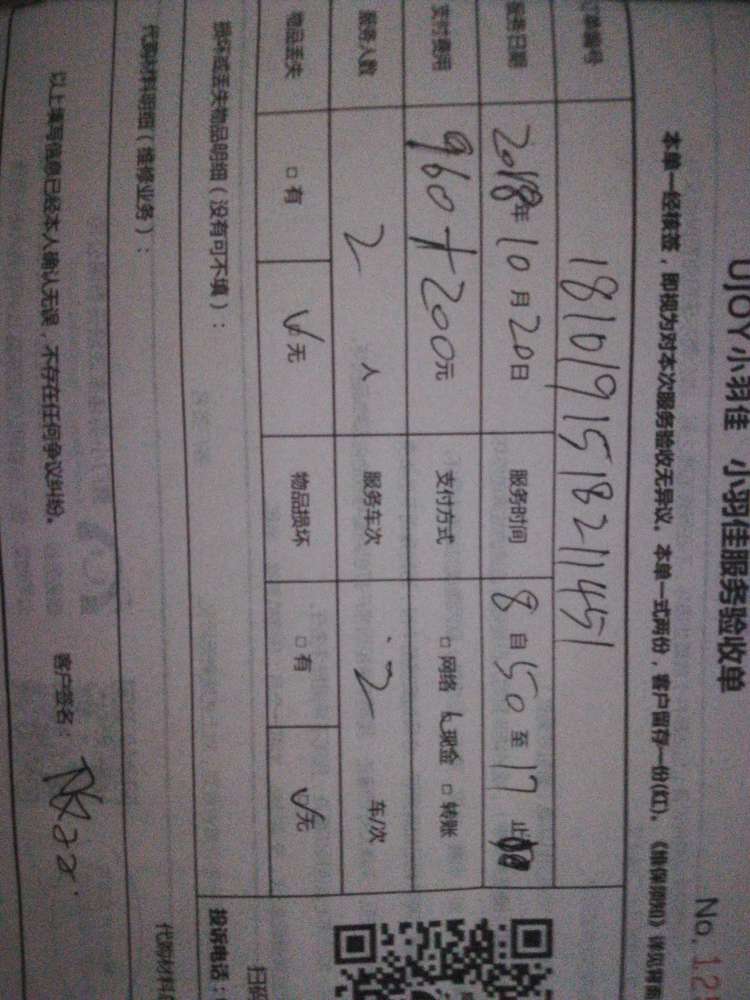 UJOY小羽佳 小羽佳服务验收单
No. 12
本单一经核签，即视为对本次服务验收无异议。本单一式两份，客户留存一份(红)。《维保须知》详见背面
订单编号 1810191518211451
服务日期 2018年10月20日 服务时间 8自50至17止
支付费用 960+200元 支付方式 □网络 现金 □转账
服务人数 2人 服务车次 2车/次
物品丢失 □有 ✓无 物品损坏 □有 ✓无
损坏或丢失物品明细（没有可不填）：
投诉电话：
代购材料明细（维修业务）：
代购材料
以上填写信息已经本人确认无误，不存在任何争议纠纷。 客户签名：